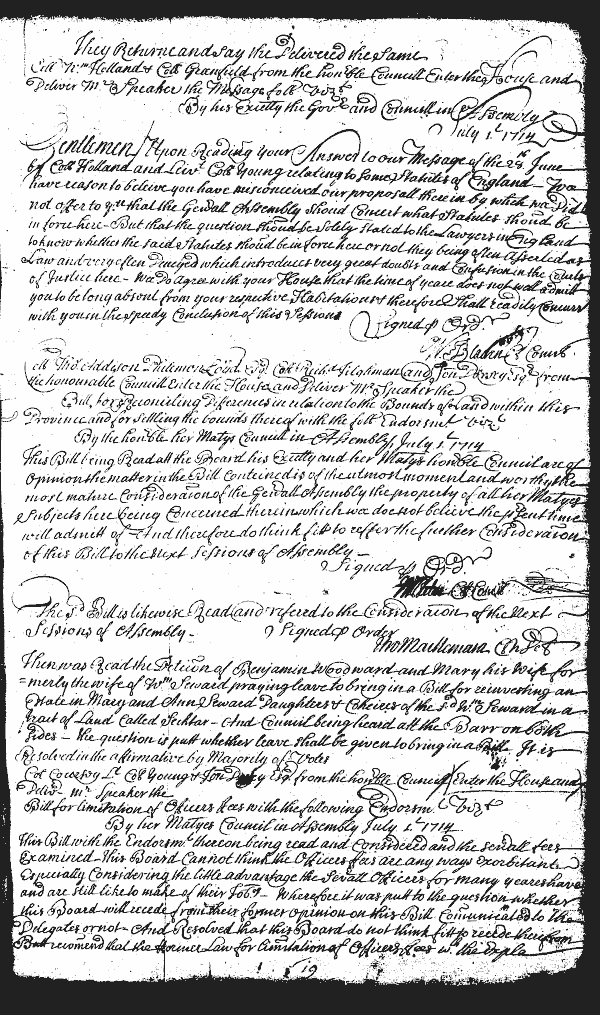 They Returne and say the Delivered the same
Coll Wm Holland & Coll Greenfield from the honoble Councill Enter the House and
Deliver Mr Speaker the Message foll Vizt
By his Excȳ the Govr and Councill in Assembly
July 1t 1714
Gentlemen Upon Reading your Answer to our Message of the 28 June
by Coll Holland and Levt Coll Young relating to some Statutes of England We
have reason to beleive you have misconceived our proposall therein by which we did
not offer to you that the Geñall Assembly should Concert what Statutes should be
in force here But that the question should be Solely Stated to the Lawyers in England
to know whether the said Statutes should be in force here or not they being often Asserted as
Law and very often Denyed which introduces very great doubts and Confusion in the Courts
of Justice here We do Agree with your House that the time of yeare does not well admitt
you to be long absent from your respective Habitations & therefore Shall readily Concurr
with you in the Speedy Conclusion of this Sessions
Signed p Ordr
W. Bladen Cl Counc
Coll Tho Addison Philemon Lloyd Esq Coll Richd Tilghman and Jon Dorsey Esqr from
the honourable Councill Enter the House and Deliver Mr Speaker the
Bill for Reconciling Differences in relation to the Bounds of Land within this
Province and for Settling the bounds thereof with the foll Endorsmt Vizt
By the honoble her Matys Councill in Assembly July 1t 1714
This Bill being Read att the Board his Excȳ and her Matys honoble Councill are of
Opinion the matter in the Bill Conteined is of the utmost moment and worthy the
most mature Consideration of the Geñall Assembly the property of all her Matyes
Subjects here being Concerned therein which we doe not believe the present time
will admitt of And therefore do think fitt to reffer the further Consideration
of this Bill to the Next Sessions of Assembly
Signed p Ordr
W Bladen Cl Councill
The sd Bill is likewise Read and refered to the Consideration of the Next
Sessions of Assembly Signed p Order
Tho Macnemara Cl
Then was Read the Peticon of Benjamin Woodward and Mary his Wife for
merly the wife of Wm Seward praying leave to bring in a Bill for reinvesting an
Estate in Mary and Ann Seward Daughters & Coheires of the sd Wm Seward in a
tract of Land Called And Council being heard att the Barr on both
Sides the question is putt whether leave shall be given to bring in a Bill It is
Resolved in the affirmative by Majority of Votes
Coll Coursey Lt Coll Young & Jon Dorsey Esqr from the honoble Councill Enter the House and
Delivr Mr Speaker the
Bill for limitation of Officers fees with the following Endorsmt Vizt
By her Matyes Council in Assembly July 1t 1714
This Bill with the Endorsmt thereon being read and Considered and the severall fees
Examined This Board Cannot think the Officers fees are any ways exorbitant
Especially Considering the little advantage the Severall Officers for many yeares have
and are still like to make of their Tobo Wherefore it was putt to the question whether
this Board will recede from their former Opinion on this Bill Comunicated to the
Delegates or not And Resolved that this Board do not think fitt to recede therefrom
But recomend that the former Law for Limitation of Officers fees wth the expla
19